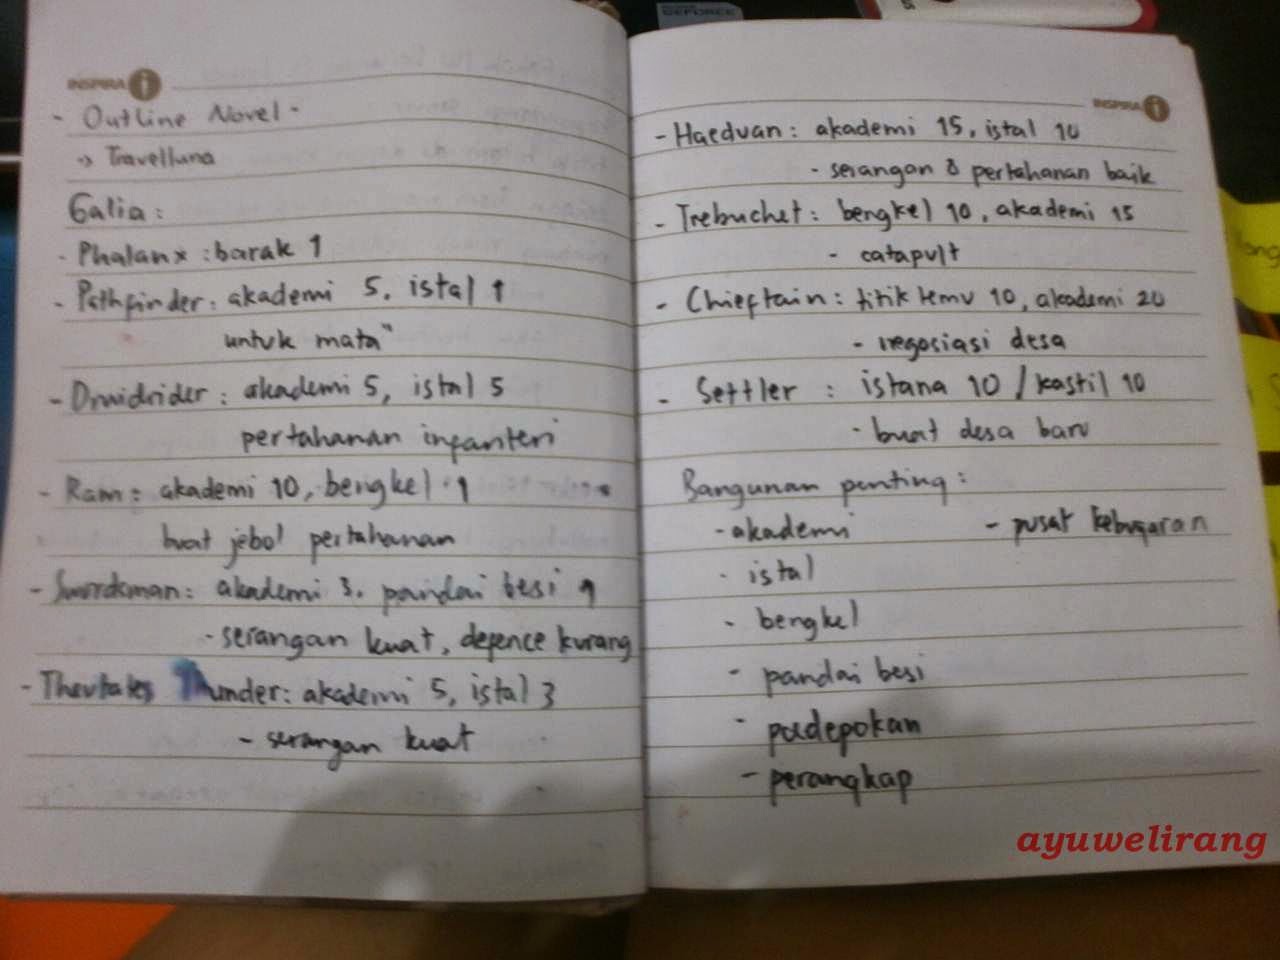 GEFORCE
INSPIRA i
- Outline Novel -
-> Travelluna
Galia :
- Phalanx : barak 1
- Pathfinder : akademi 5, istal 1
untuk mata"
- Druidrider : akademi 5, istal 5
pertahanan infanteri
- Ram : akademi 10, bengkel 1
buat jebol pertahanan
- Swordsman : akademi 3, pandai besi 1
- serangan kuat, defence kurang
- Theutates Thunder : akademi 5, istal 3
- serangan kuat
INSPIRA i
- Haeduan : akademi 15, istal 10
- serangan & pertahanan baik
- Trebuchet : bengkel 10, akademi 15
- catapult
- Chieftain : titik temu 10, akademi 20
- negosiasi desa
- Settler : istana 10 / kastil 10
- buat desa baru
Bangunan penting :
- akademi - pusat kebugaran
- istal
- bengkel
- pandai besi
- padepokan
- perangkap
ayuwelirang